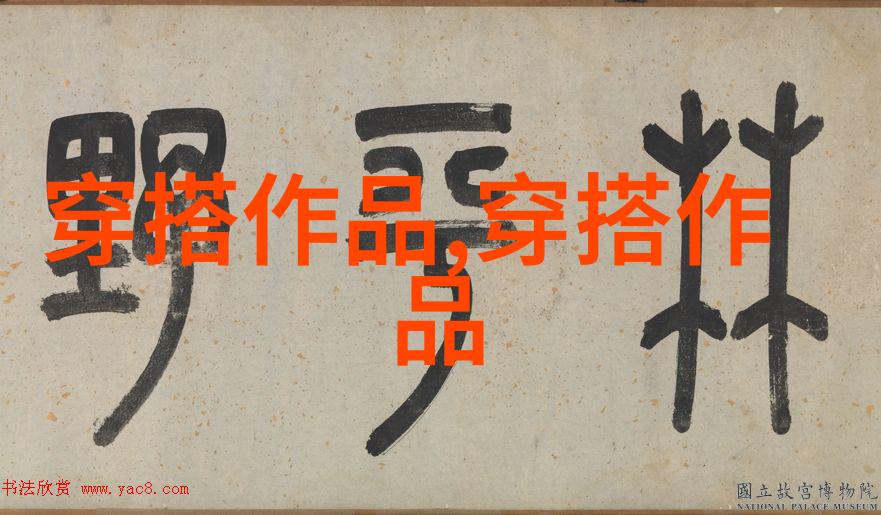 林野
穿搭作品,穿搭作
品
书法欣赏 www.yac8.com
國立故宮博物院
NATIONAL PALACE MUSEUM